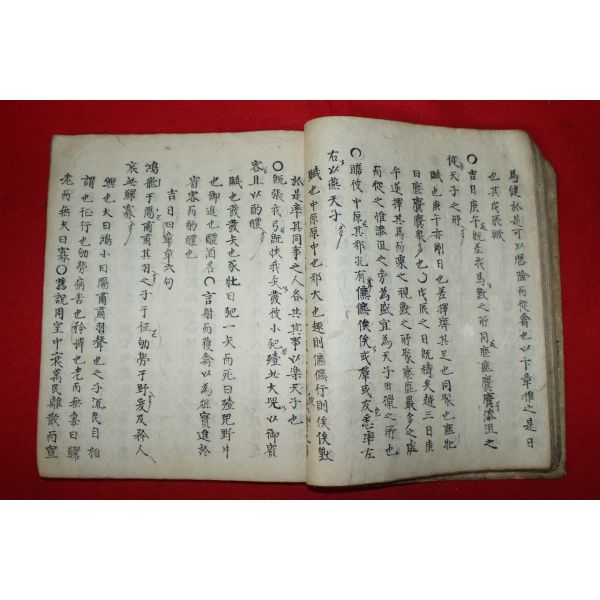 馬健於是可以歷險而從禽也以下章推之是日
也其戊辰歟
○吉日庚午既差我馬獸之所同麀鹿麌麌漆沮之
從天子之所
賦也庚午亦剛日也差擇齊其足也同聚也鹿牝
曰麀麌麌衆多也○戊辰之日既禱矣越三日庚
午遂擇其馬而乘之視獸之所聚麀鹿最多之處
而從之惟漆沮之旁爲盛宜爲天子田獵之所也
○瞻彼中原其祁孔有儦儦俟俟或群或友悉率左
右以燕天子
賦也中原原中也祁大也趨則儦儦行則俟俟獸
於是率其同事之人各共其事以樂天子也
○既張我弓既挾我矢發彼小豝殪此大兕以御賓
客且以酌醴
賦也發發矢也豕牡曰豝一矢而死曰殪兕野牛
也御進也醴酒名○言射而獲禽以爲俎實進於
賓客而酌醴也
吉日四章章六句
鴻鴈于飛肅肅其羽之子于征劬勞于野爰及矜人
哀此鰥寡
興也大曰鴻小曰鴈肅肅羽聲也之子流民自相
謂也征行也劬勞病苦也矜憐也老而無妻曰鰥
老而無夫曰寡○舊說周室中衰萬民離散而宣